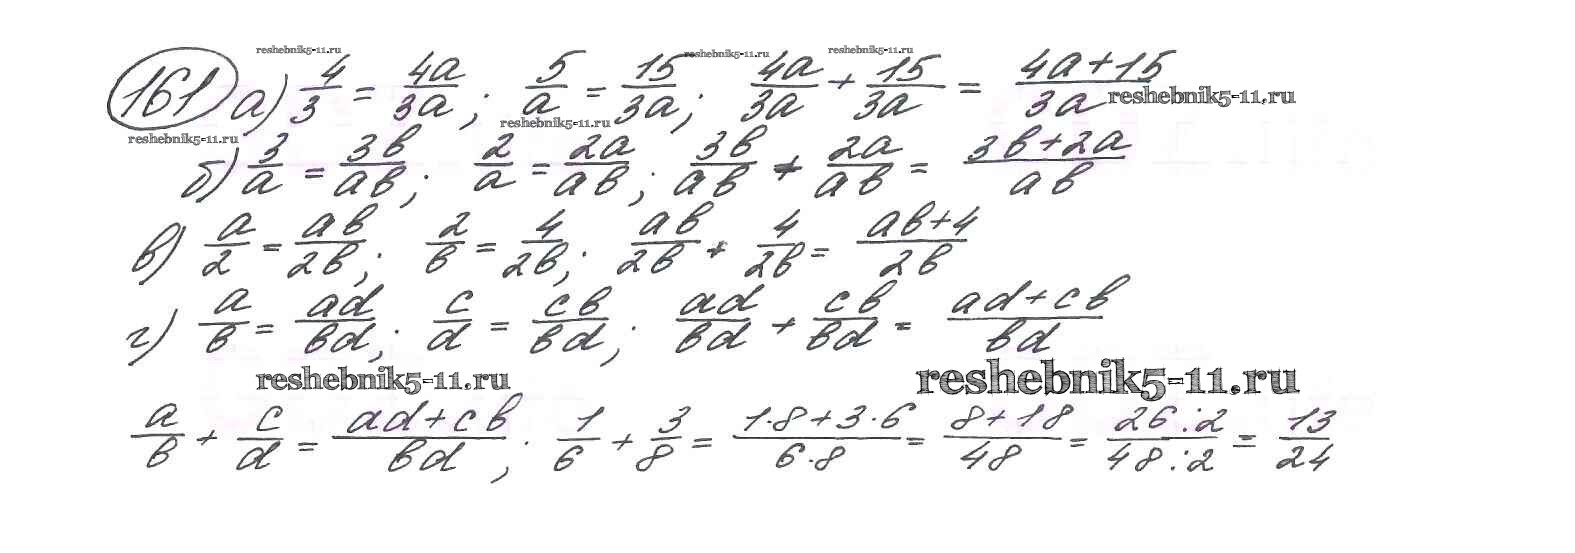 reshebnik5-11.ru reshebnik5-11.ru reshebnik5-11.ru
161 а) 4/3 = 4a/3a; 5/a = 15/3a; 4a/3a + 15/3a = (4a+15)/3a reshebnik5-11.ru
reshebnik5-11.ru reshebnik5-11.ru
б) 3/a = 3b/ab; 2/a = 2a/ab; 3b/ab + 2a/ab = (3b+2a)/ab
в) a/2 = ab/2b; 2/b = 4/2b; ab/2b + 4/2b = (ab+4)/2b
г) a/b = ad/bd; c/d = cb/bd; ad/bd + cb/bd = (ad+cb)/bd
reshebnik5-11.ru reshebnik5-11.ru
a/b + c/d = (ad+cb)/bd; 1/6 + 3/8 = (1·8+3·6)/(6·8) = (8+18)/48 = (26:2)/(48:2) = 13/24